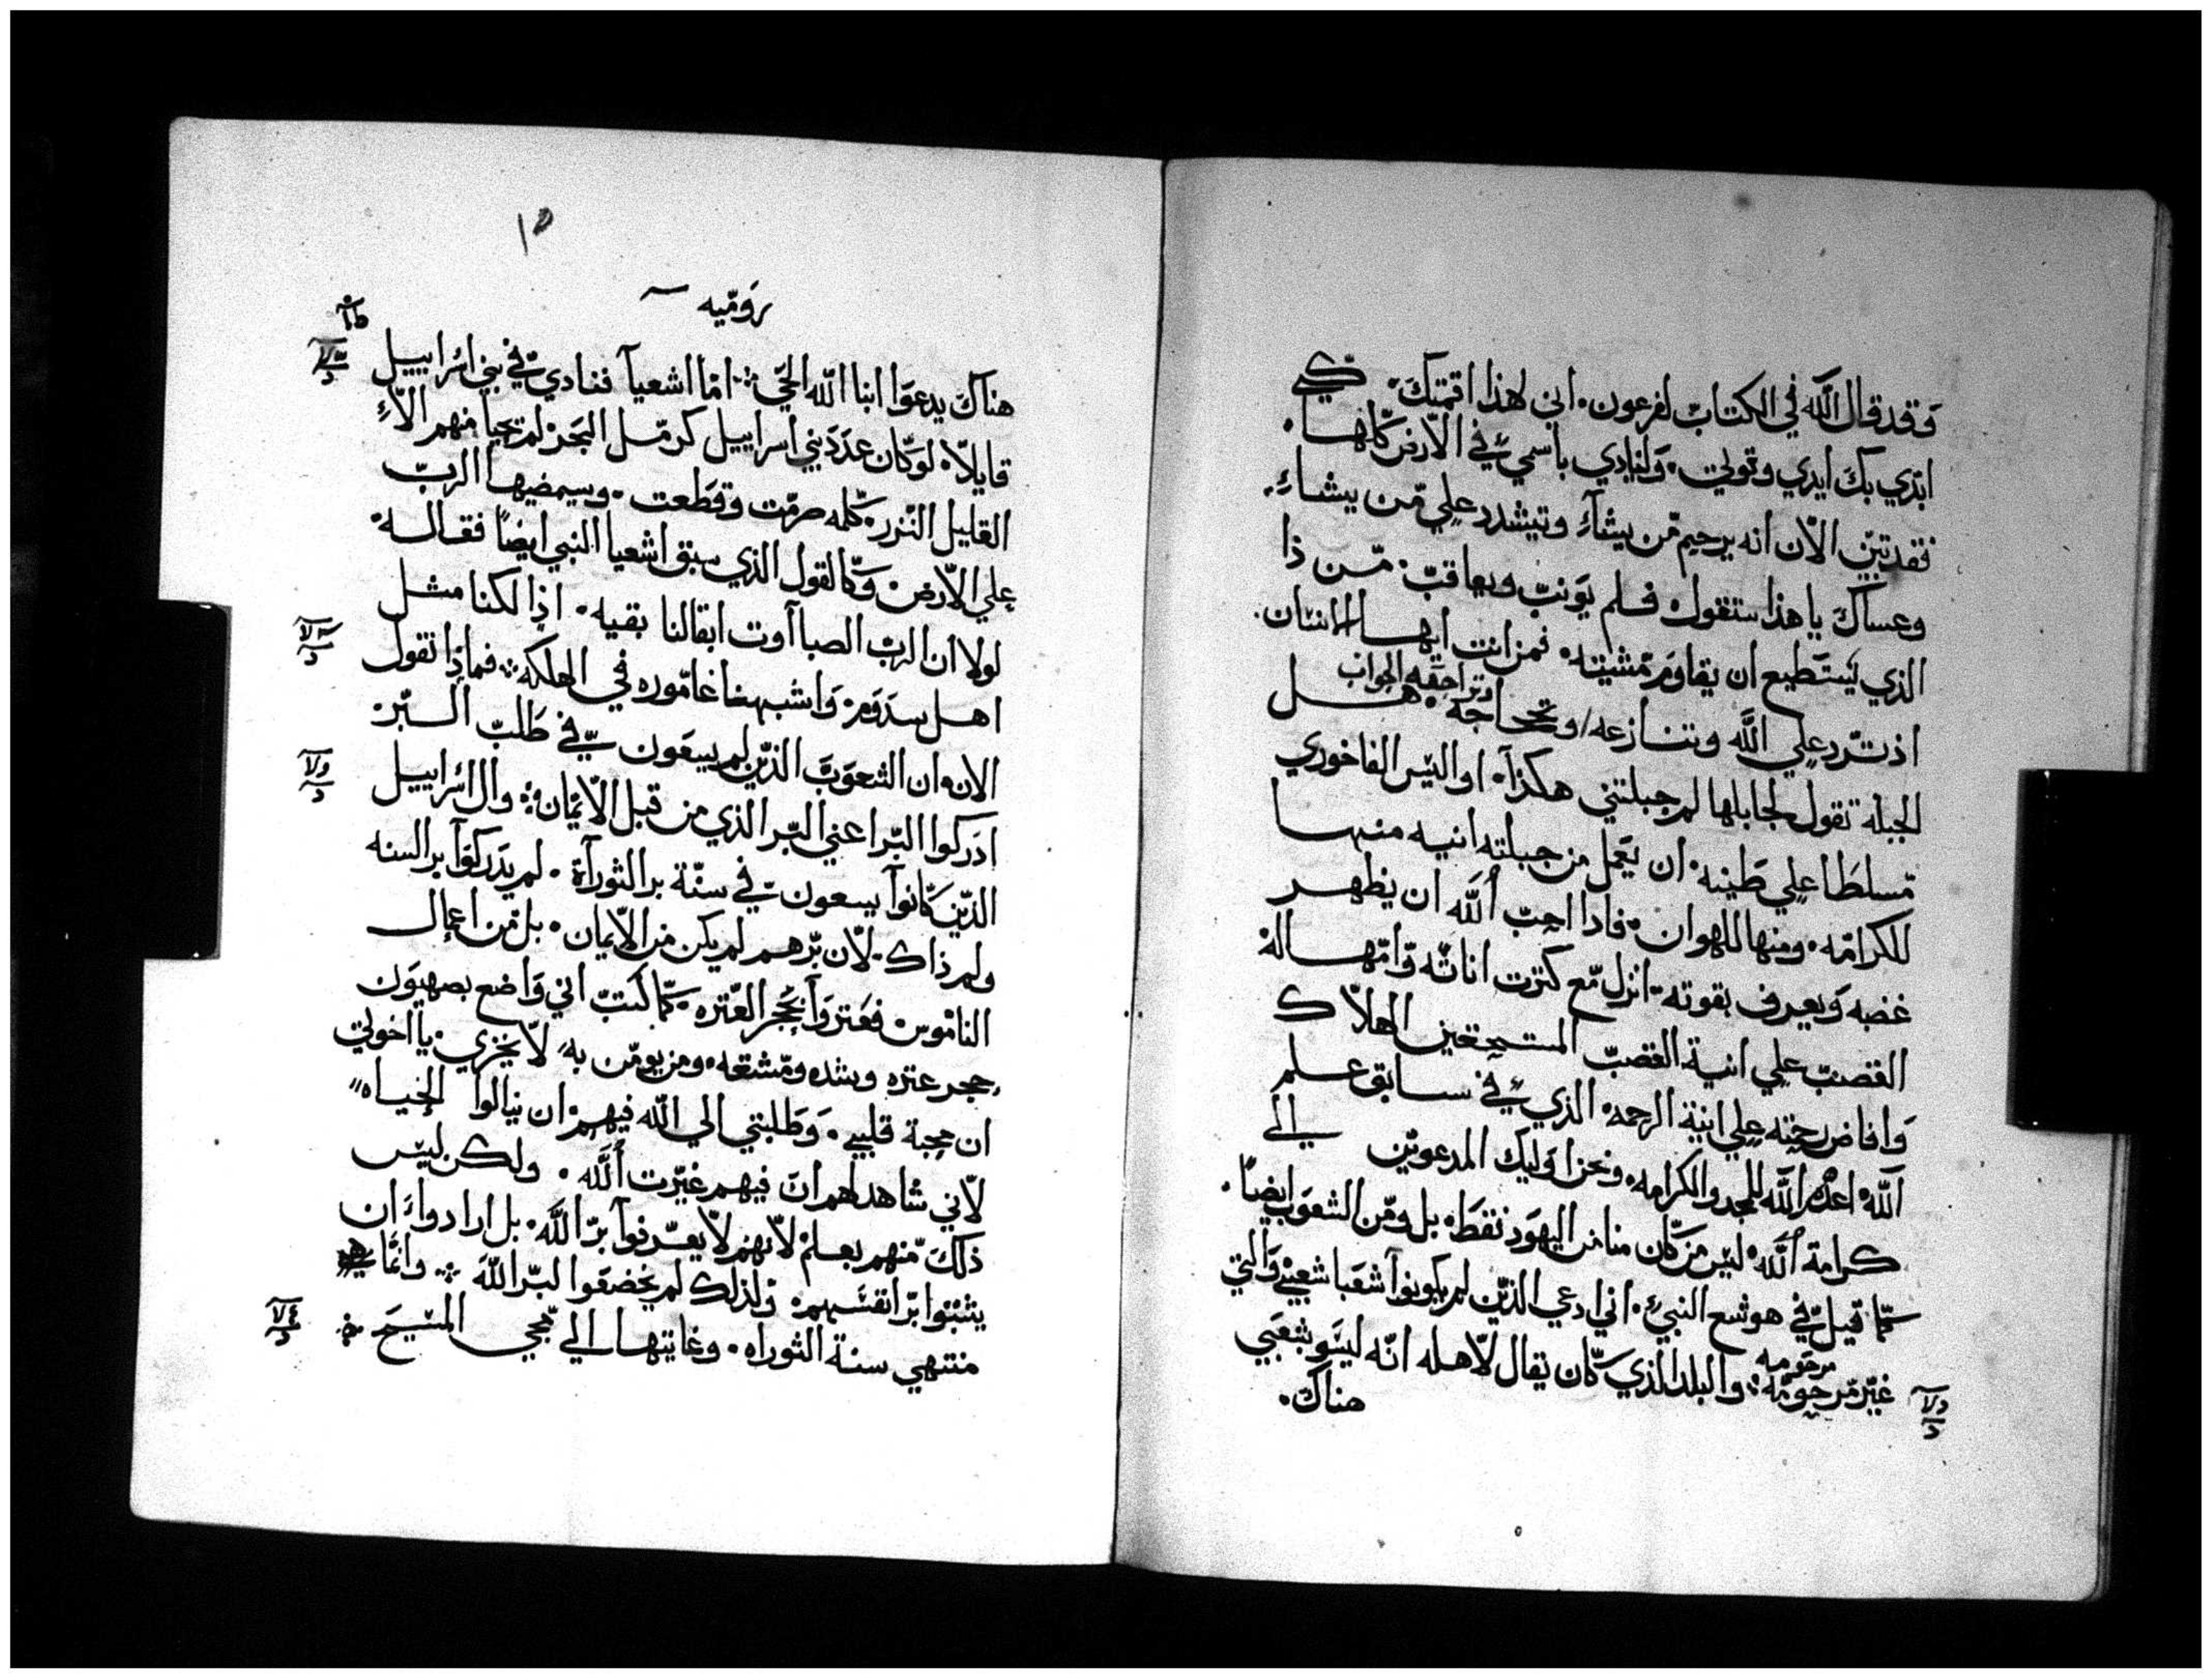 وقد قال الله في الكتاب لفرعون. اني لهذا اقمتك. كي
ابدي بك ايدي وقوتي. ولينادي باسمي في الارض كلها.
فقد تبين الان انه يرحم من يشاء وتيشدد علي من يشاء.
وعساك يا هذا ستقول. فلم يونب ويعاقب. من ذا
الذي يستطيع ان يقاوم مشيته. فمن انت ايها الانسان.
اذ ترد علي الله وتنازعه / وتحاجه. هل
وتراجعه الجواب
الجبله تقول لجابلها لم جبلتني هكذا. او اليس الفاخوري
مسلطا علي طينه. ان يعمل من جبلته انيه منها
للكرامه. ومنها للهوان. فاذا احب الله ان يظهر
غضبه ويعرف بقوته. انزل مع كترت اناته وامهاله
الغضب علي انية الغضب المستحقين الهلاك
وافاض رحمته علي انية الرحمه. الذي في سابق علم
الله اعدهم الله للمجد والكرامه. ونحن اوليك المدعوين الي
كرامة الله. ليس من كان منا من اليهود فقط. بل ومن الشعوب ايضا.
كما قيل في هوشع النبي. اني ادعي الذين لم يكونوا شعبا شعبي والتي
غير مرحومه مرحومه. والبلد الذي كان يقال لاهله انه ليسو بشعبي
هناك.
١٥
روميه
هناك يدعوا ابنا الله الحي. اما اشعيا فنادي في بني اسراييل
قايلا. لو كان عدد بني اسراييل كرمل البحر. لم تحيا منهم الا
القليل النزر. كلمه صرمت وقطعت. وسيمضيها الرب
علي الارض. وكالقول الذي سبق اشعيا النبي ايضا فقاله.
لولا ان الرب الصباآوت ابقا لنا بقيه. اذا لكنا مثل
اهل سدوم. واشبهنا غاموره في الهلكه. فماذا نقول
الان. ان الشعوب الذين لم يسعون في طلب البر.
ادركوا البر اعني البر الذي من قبل الايمان. وال اسراييل
الذين كانوا يسعون في سنة بر التوراة. لم يدركوا بر السنه
ولم ذاك. لان برهم لم يكن من الايمان. بل من اعمال
الناموس. فعتروا بحجر العتره. كما كتب اني واضع بصهيون
حجر عتره وشده ومشقه. ومن يومن به لا يخزي. يا اخوتي
ان محبة قلبي. وطلبتي الي الله فيهم. ان ينالوا الحياه
لاني شاهد لهم ان فيهم غيرت الله. ولكن ليس
ذلك منهم بعلم. لانهم لا يعرفوا بر الله. بل ارادوا ان
يثبتوا بر انفسهم. ولذلك لم يخضعوا لبر الله. وانما
منتهي سنة التوراه. وغايتها الي مجي المسيح